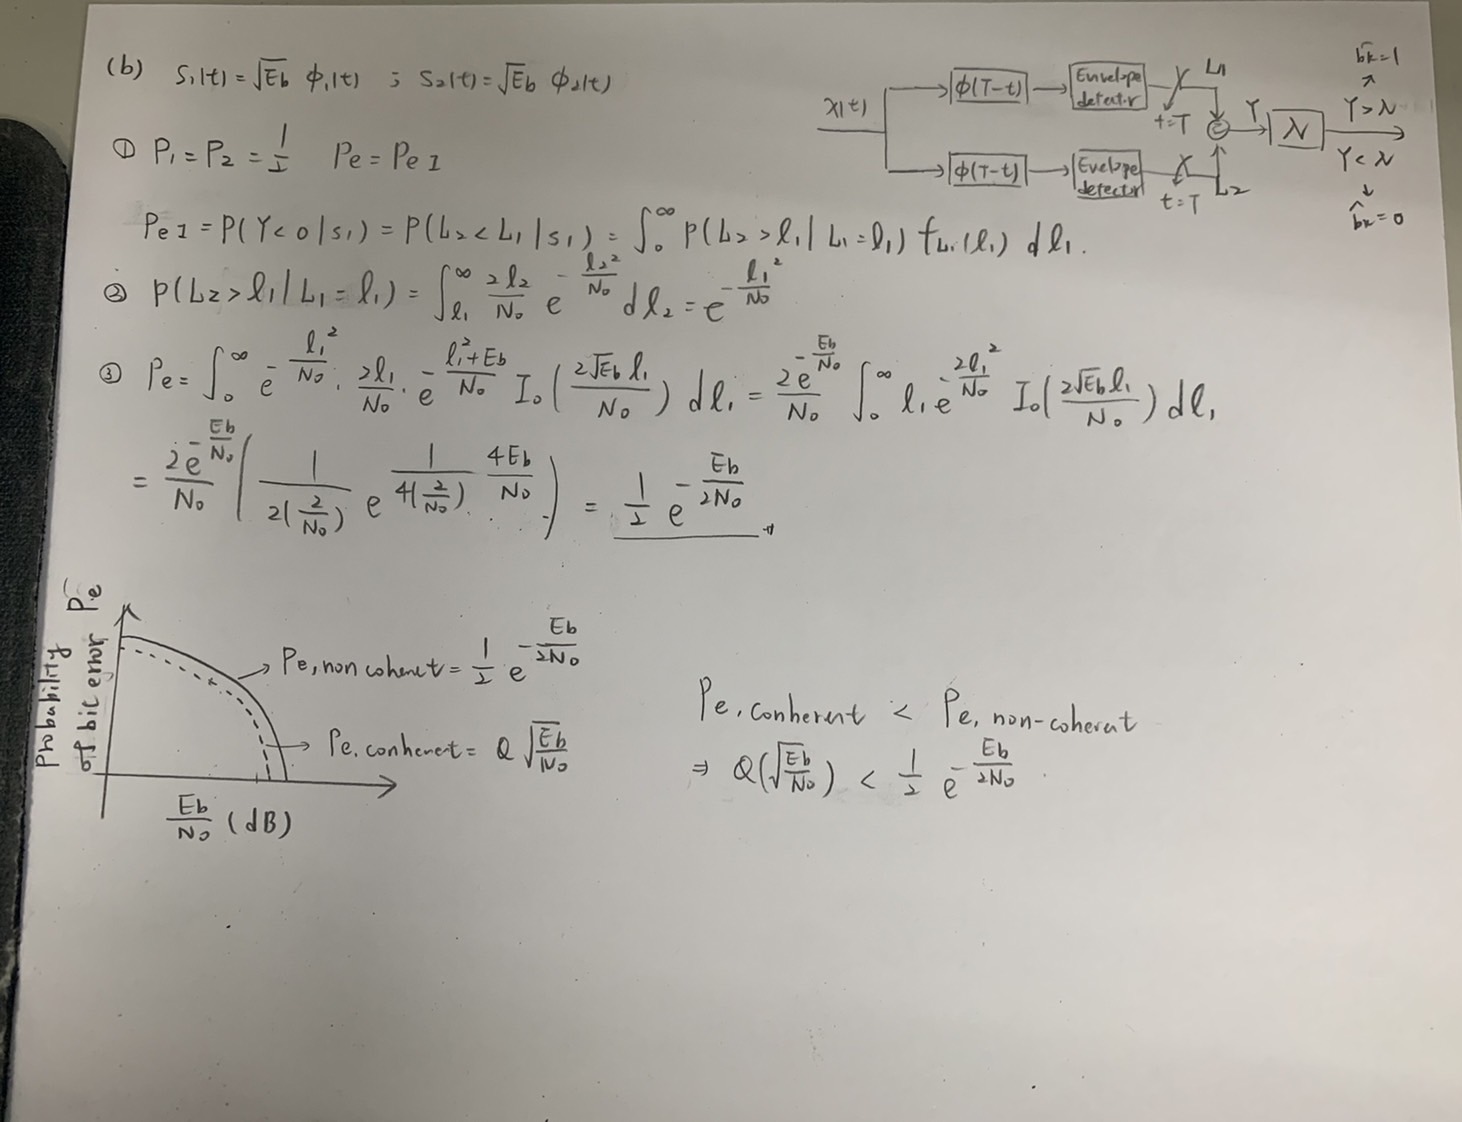 (b) S₁(t) = √Eb ϕ₁(t) ; S₂(t) = √Eb ϕ₂(t)
x(t)
ϕ(T-t)
Envelope detector
t=T
L₁
ϕ(T-t)
Evelope detector
t=T
L₂
Y
λ
Y > λ
b̂k=1
Y < λ
b̂k=0
① P₁ = P₂ = 1/2 Pe = Pe1
Pe1 = P(Y<0|s₁) = P(L₂<L₁|s₁) = ∫₀^∞ P(L₂>l₁|L₁=l₁) f_L₁(l₁) dl₁.
② P(L₂>l₁|L₁=l₁) = ∫_l₁^∞ 2l₂/N₀ e^(-l₂²/N₀) dl₂ = e^(-l₁²/N₀)
③ Pe = ∫₀^∞ e^(-l₁²/N₀) · 2l₁/N₀ · e^(-(l₁²+Eb)/N₀) I₀(2√Eb l₁/N₀) dl₁ = 2e^(-Eb/N₀)/N₀ ∫₀^∞ l₁ e^(-2l₁²/N₀) I₀(2√Eb l₁/N₀) dl₁
= 2e^(-Eb/N₀)/N₀ (1/(2(2/N₀)) e^(1/(4(2/N₀)) · 4Eb/N₀)) = 1/2 e^(-Eb/2N₀)
Probability of bit error Pe
Pe, non cohenct = 1/2 e^(-Eb/2N₀)
Pe. conherent = Q √(Eb/N₀)
Eb/N₀ (dB)
Pe, conherent < Pe, non-coherent
⇒ Q(√(Eb/N₀)) < 1/2 e^(-Eb/2N₀)